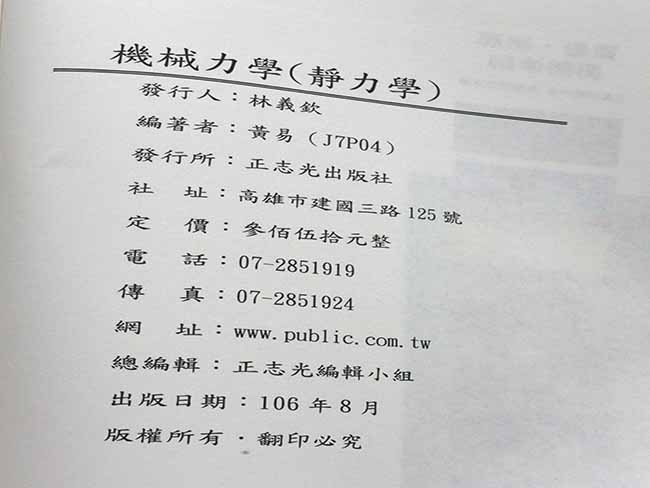 機械力學(靜力學)
發行人：林義欽
編著者：黃易（J7P04）
發行所：正志光出版社
社　址：高雄市建國三路125號
定　價：參佰伍拾元整
電　話：07-2851919
傳　真：07-2851924
網　址：www.public.com.tw
總編輯：正志光編輯小組
出版日期：106年8月
版權所有・翻印必究